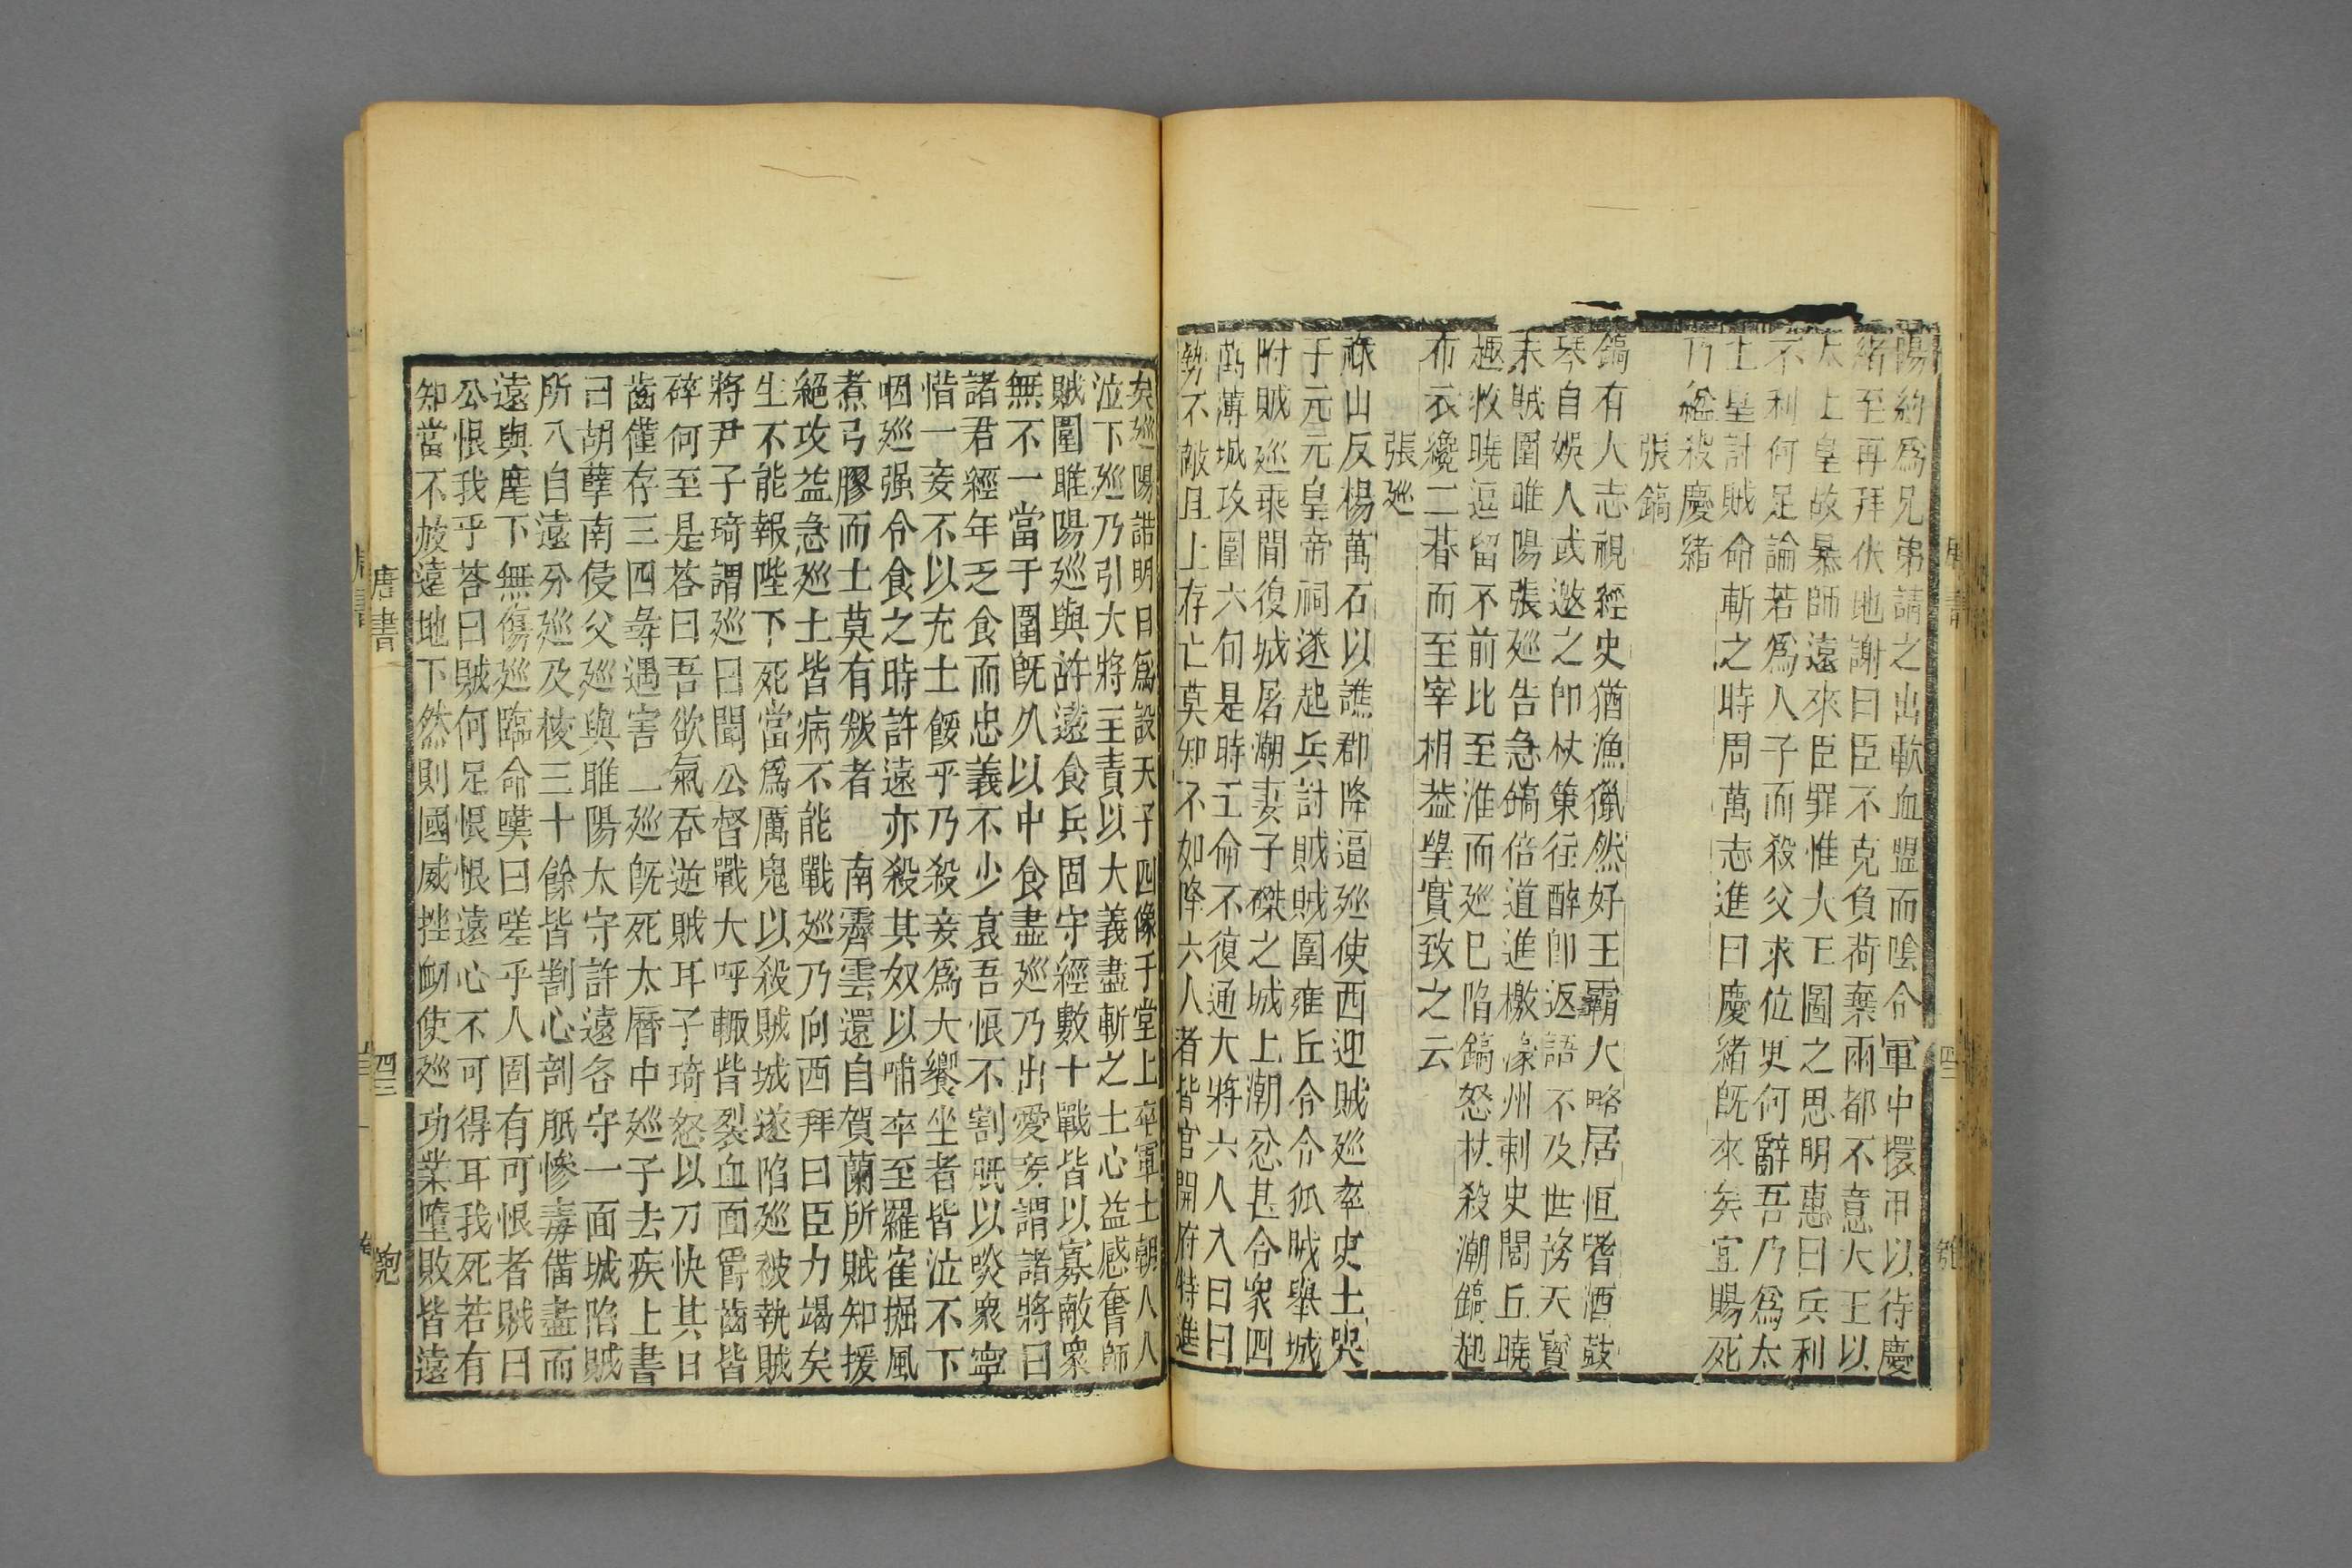 陽約爲兄弟請之出歃血盟而陰令軍中擐甲以待慶
緒至再拜伏地謝曰臣不克負荷棄兩都不意大王以
太上皇故暴師遠來臣罪惟大王圖之思明惠曰兵利
不利何足論若爲人子而殺父求位更何辭吾乃爲太
上皇討賊命斬之時周萬志進曰慶緒旣來矣宜賜死
乃縊殺慶緒
張鎬
鎬有人志視經史猶漁獵然好王霸大略居恒嗜酒鼓
琴自娛人或邀之卽杖策往醉卽返語不及世務天寶
末賊圍睢陽張廵告急鎬倍道進檄濠州刺史閭丘曉
趣救曉逗留不前比至淮而廵已陷鎬怒杖殺潮鎬起
布衣纔二朞而至宰相葢望實致之云
張廵
祿山反楊萬石以譙郡降逼廵使西迎賊廵率吏士哭
于元元皇帝祠遂起兵討賊賊圍雍丘令令狐賊舉城
附賊廵乘間復城屠潮妻子磔之城上潮忿甚合衆四
萬薄城攻圍六旬是時王命不復通大將六人入曰曰
勢不敵且上存亡莫知不如降六人者皆官開府特進
矣廵陽諾明日爲設天子四像于堂上率軍士朝人人
泣下廵乃引大將至責以大義盡斬之士心益感奮師
賊圍睢陽廵與許遠食兵固守經數十戰皆以寡敵衆
無不一當于圍旣久以中食盡廵乃出愛妾謂諸將曰
諸君經年乏食而忠義不少衰吾恨不割肌以啖衆寧
惜一妾不以充士餒乎乃殺妾爲大饗坐者皆泣不下
咽廵强令食之時許遠亦殺其奴以哺卒至羅雀掘風
煮弓膠而士莫有叛者 南霽雲還自賀蘭所賊知援
絕攻益急廵士皆病不能戰廵乃向西拜曰臣力竭矣
生不能報陛下死當爲厲鬼以殺賊城遂陷廵被執賊
將尹子琦謂廵曰聞公督戰大呼輙眥裂血面嚼齒皆
碎何至是荅曰吾欲氣吞逆賊耳子琦怒以刀快其口
齒僅存三四尋遇害 一廵旣死太曆中廵子去疾上書
曰胡孽南侵父廵與睢陽太守許遠各守一面城陷賊
所入自遠分廵及棱三十餘皆割心剖肌慘毒備盡而
遠與麾下無傷廵臨命嘆曰嗟乎人固有可恨者賊曰
公恨我乎荅曰賊何足恨恨遠心不可得耳我死若有
知當不赦遠地下然則國威挫衂使廵功業墮敗皆遠
唐書
四三